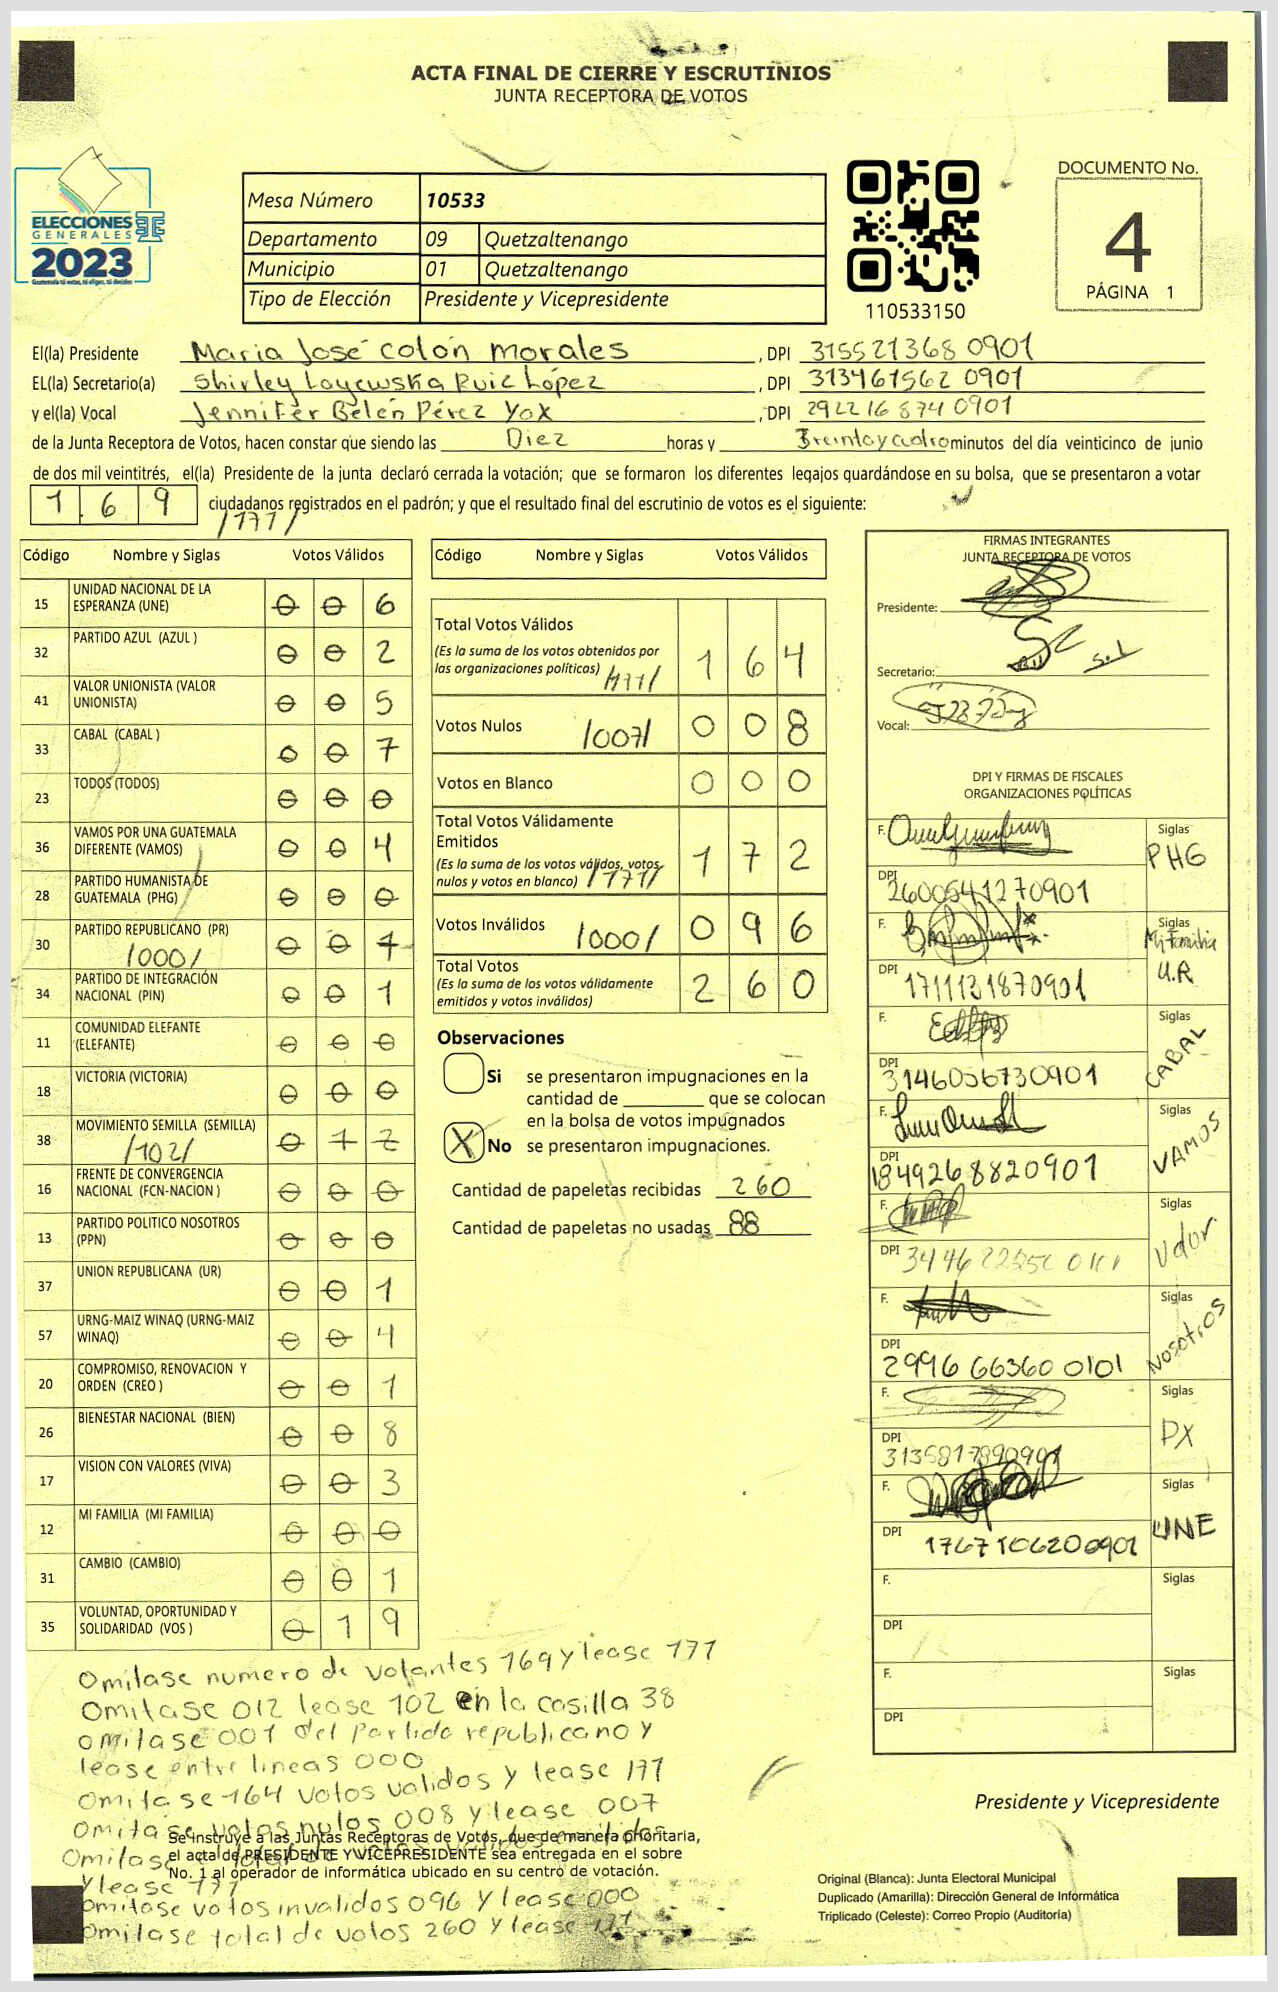 ACTA FINAL DE CIERRE Y ESCRUTINIOS
JUNTA RECEPTORA DE VOTOS
ELECCIONES
GENERALES
2023
Mesa Número 10533
Departamento 09 Quetzaltenango
Municipio 01 Quetzaltenango
Tipo de Elección Presidente y Vicepresidente
110533150
DOCUMENTO No.
4
PÁGINA 1
El(la) Presidente María José Colón Morales, DPI 315521368 0901
EL(la) Secretario(a) Shirley Loyewska Ruiz López, DPI 313461562 0901
y el(la) Vocal Jennifer Belén Pérez Yox, DPI 292216874 0901
de la Junta Receptora de Votos, hacen constar que siendo las Diez horas y Treinta y cuatro minutos del día veinticinco de junio
de dos mil veintitrés, el(la) Presidente de la junta declaró cerrada la votación; que se formaron los diferentes legajos guardándose en su bolsa, que se presentaron a votar
1 6 9 ciudadanos registrados en el padrón; y que el resultado final del escrutinio de votos es el siguiente:
/177/
Código Nombre y Siglas Votos Válidos
15 UNIDAD NACIONAL DE LA
ESPERANZA (UNE) 0 0 6
32 PARTIDO AZUL (AZUL ) 0 0 2
41 VALOR UNIONISTA (VALOR
UNIONISTA) 0 0 5
33 CABAL (CABAL ) 0 0 7
23 TODOS (TODOS) 0 0 0
36 VAMOS POR UNA GUATEMALA
DIFERENTE (VAMOS) 0 0 4
28 PARTIDO HUMANISTA DE
GUATEMALA (PHG) 0 0 0
30 PARTIDO REPUBLICANO (PR) 0 0 1
/000/
34 PARTIDO DE INTEGRACIÓN
NACIONAL (PIN) 0 0 1
11 COMUNIDAD ELEFANTE
(ELEFANTE) 0 0 0
18 VICTORIA (VICTORIA) 0 0 0
38 MOVIMIENTO SEMILLA (SEMILLA) 0 1 2
/102/
16 FRENTE DE CONVERGENCIA
NACIONAL (FCN-NACION ) 0 0 0
13 PARTIDO POLITICO NOSOTROS
(PPN) 0 0 0
37 UNION REPUBLICANA (UR) 0 0 1
57 URNG-MAIZ WINAQ (URNG-MAIZ
WINAQ) 0 0 4
20 COMPROMISO, RENOVACION Y
ORDEN (CREO ) 0 0 1
26 BIENESTAR NACIONAL (BIEN) 0 0 8
17 VISION CON VALORES (VIVA) 0 0 3
12 MI FAMILIA (MI FAMILIA) 0 0 0
31 CAMBIO (CAMBIO) 0 0 1
35 VOLUNTAD, OPORTUNIDAD Y
SOLIDARIDAD (VOS ) 0 1 9
Código Nombre y Siglas Votos Válidos
Total Votos Válidos
(Es la suma de los votos obtenidos por
las organizaciones políticas) /177/ 1 6 4
Votos Nulos /007/ 0 0 8
Votos en Blanco 0 0 0
Total Votos Válidamente
Emitidos
(Es la suma de los votos válidos, votos
nulos y votos en blanco) /177/ 1 7 2
Votos Inválidos /000/ 0 9 6
Total Votos
(Es la suma de los votos válidamente
emitidos y votos inválidos) 2 6 0
Observaciones
Si se presentaron impugnaciones en la
cantidad de ________ que se colocan
en la bolsa de votos impugnados
X No se presentaron impugnaciones.
Cantidad de papeletas recibidas 260
Cantidad de papeletas no usadas 88
FIRMAS INTEGRANTES
JUNTA RECEPTORA DE VOTOS
Presidente:
Secretario:
Vocal:
DPI Y FIRMAS DE FISCALES
ORGANIZACIONES POLÍTICAS
F. Siglas PHG
DPI 2600541270901
F. Siglas Mi Familia
DPI 1711131870901 U.R
F. Siglas CABAL
DPI 3146056730901
F. Siglas VAMOS
DPI 1849268820901
F. Siglas Valor
DPI
F. Siglas NOSOTROS
DPI 2996 66360 0101
F. Siglas PX
DPI 3135817890901
F. Siglas UNE
DPI 1767106200901
F. Siglas
DPI
F. Siglas
DPI
Omitase numero de votantes 169 y lease 177
Omitase 012 lease 102 en la casilla 38
omitase 001 del Partido republicano y
lease entre lineas 000
Omitase 164 votos validos y lease 177
Omitase votos nulos 008 y lease 007
Omitase total de votos validos emitidos
y lease 177
Omitase votos invalidos 096 y lease 000
Omitase total de votos 260 y lease 177
Se instruye a las Juntas Receptoras de Votos, que de manera prioritaria,
el acta de PRESIDENTE Y VICEPRESIDENTE sea entregada en el sobre
No. 1 al operador de informática ubicado en su centro de votación.
Presidente y Vicepresidente
Original (Blanca): Junta Electoral Municipal
Duplicado (Amarilla): Dirección General de Informática
Triplicado (Celeste): Correo Propio (Auditoría)